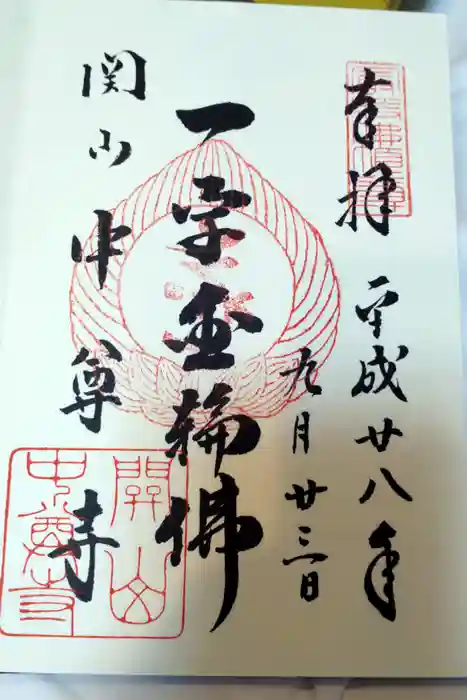 奉拝
平成廿八年
九月廿三日
一字金輪佛
関山
中尊寺
關山
中尊寺